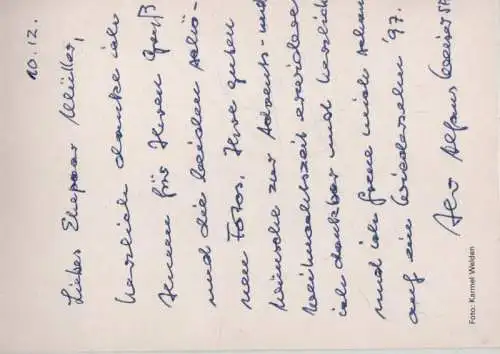 10.12.
Liebes Ehepaar Müller,
herzlich danke ich
Ihnen für Ihren Gruß
und die beiden schö-
nen Fotos. Ihre guten
Wünsche zur Advents- und
Weihnachtszeit erwidere
ich dankbar und herzlich
und ich freue mich schon
auf ein Wiedersehen '97.
Ihr Alfons
Foto: Karmel Welden